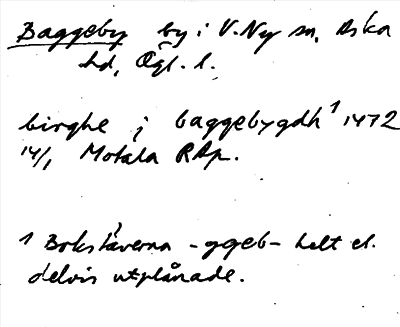 Baggeby by i V. Ny sn, Aska
hd, Ögl. l.
birghe j baggebygdh 1 1472
14/1 Motala RAp.
1 Bokstäverna -ggeb- helt el.
delvis utplånade.